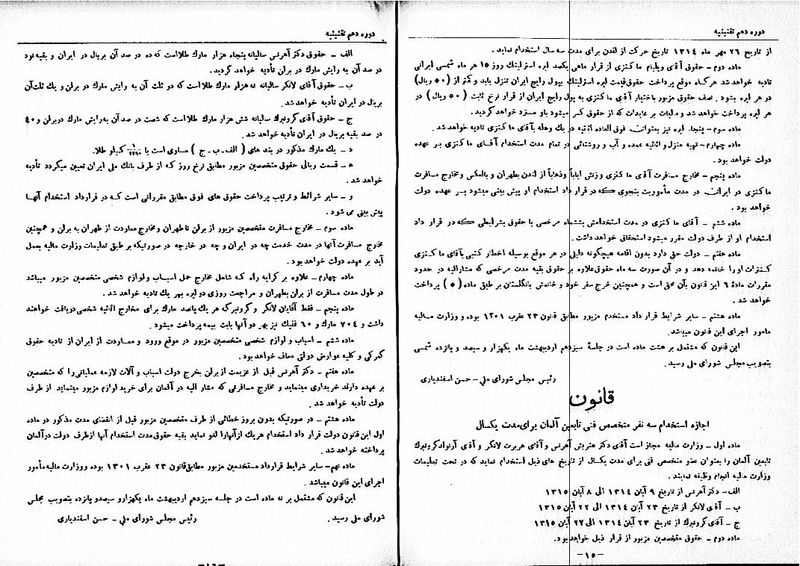 دوره دهم تقنینیه
از تاریخ ۲۶ مهر ماه ۱۳۱۴ تاریخ حرکت از لندن برای مدت سه سال استخدام نماید .
ماده دوم - حقوق آقای ویلیام ماکنزی از قرار ماهی یکصد لیره استرلینگ روز ۱۵ هر ماه شمسی ایرانی
تادیه خواهد شد هرگاه موقع پرداخت حقوق قیمت لیره استرلینگ بپول رایج ایران تنزل یابد و کمتر از (۵۰ ریال)
در هر لیره بشود . نصف حقوق مزبور باختیار آقای ماکنزی به پول رایج ایران از قرار نرخ ثابت (۵۰ ریال) در
هر لیره پرداخت خواهد شد و مالیات بر عایدات که از حقوق کسر میشود باو مسترد خواهد گردید .
ماده سوم - پنجاه لیره نیز بعنوان فوق العاده اثاثیه در یک وهله بآقای ماکنزی تادیه خواهد شد.
ماده چهارم - تهیه منزل و اثاثیه عمده و آب و روشنائی در تمام مدت استخدام آقای ماکنزی بر عهده
دولت خواهد بود .
ماده پنجم - مخارج مسافرت آقای ماکنزی وزنش ایاباً وذهاباً از لندن بطهران و بالعکس و مخارج مسافرت
ماکنزی در ایران در مدت مأموریت بنحوی که در قرار داد استخدام او پیش بینی میشود بر عهده دولت
خواهد بود .
ماده ششم - آقای ماکنزی در مدت استخدامش بششماه مرخصی با حقوق بشرایطی که در قرار داد
استخدام او از طرف دولت مقرر میشود استحقاق خواهد داشت .
ماده هفتم - دولت حق دارد بدون اقامه هیچگونه دلیل در هر موقع بوسیله اخطار کتبی بآقای ماکنزی
کنترات او را خاتمه دهد و در آن صورت سه ماه حقوق علاوه بر حقوق بقیه مدت مرخصی که مشارالیه در حدود
مقررات مادهٔ ٦ این قانون بآن محق است و همچنین خرج سفر خود و خانمش بانگلستان بر طبق ماده (۵) پرداخت
خواهد شد .
ماده هشتم - سایر شرایط قرار داد مستخدم مزبور مطابق قانون ۲۳ عقرب ۱۳۰۱ بوده و وزارت مالیه
مامور اجرای این قانون میباشد.
این قانون که مشتمل بر هشت ماده است در جلسه سیزدهم اردیبهشت ماه یکهزار و سیصد و پانزده شمسی
بتصویب مجلس شورای ملی رسید .
رئیس مجلس شورای ملی - حسن اسفندیاری
قانون
اجازه استخدام سه نفر متخصص فنی تابعین آلمان برای مدت یکسال
ماده اول - وزارت مالیه مجاز است آقای دکتر هنریش آهرنس و آقای هربرت لانگر و آقای
تبعین آلمان را بعنوان عضو متخصص فنی برای مدت یکسال از تاریخ های ذیل استخدام نماید که در تحت تعلیمات
وزارت مالیه انجام وظیفه نمایند .
الف - دکتر آهرنس از تاریخ ۹ آبان ۱۳۱۴ الی ۸ آبان ۱۳۱۵
ب - آقای لانگر از تاریخ ۲۳ آبان ۱۳۱۴ الی ۲۲ آبان ۱۳۱۵
ج - آقای کرونبرگ از تاریخ ۲۳ آبان ۱۳۱۴ الی ۲۲ آبان ۱۳۱۵
ماده دوم - حقوق متخصصین مزبور از قرار ذیل خواهد بود.
-۱۵-
دوره دهم تقنینیه
الف - حقوق دکتر آهرنس سالیانه پنجاه هزار مارک طلا است که ده در صد آن بریال در ایران و بقیه نود
در صد آن به رایش مارک در برلن تأدیه خواهد گردید.
ب - حقوق آقای لانگر سالیانه نه هزار مارک طلا است که دو ثلث آن به رایش مارک در برلن و یک ثلث آن
بریال در ایران تأدیه خواهد شد .
ج - حقوق آقای کرونبرگ سالیانه شش هزار مارک طلا است که شصت در صد آن به رایش مارک در برلن و ۴۰
در صد بقیه بریال در ایران تأدیه خواهد شد .
د - یک مارک مذکور در بند های ( الف ـ ب ـ ج ) مساوی است با کیلو طلا.
ه - قسمت ریالی حقوق متخصصین مزبور مطابق نرخ روز که از طرف بانک ملی ایران تعیین میگردد تأدیه
خواهد شد .
و - سایر شرائط و ترتیب پرداخت حقوق های فوق مطابق مقرراتی است که در قرارداد استخدام آنها
پیش بینی می شود .
ماده سوم - مخارج مسافرت متخصصین مزبور از برلن تا طهران و مخارج معاودت از طهران به برلن و همچنین
مخارج مسافرت آنها در مدت خدمت چه در ایران و چه در خارجه در صورتیکه بر طبق تعلیمات وزارت مالیه بعمل
آید بر عهده دولت خواهد بود .
ماده چهارم - علاوه بر کرایه راه که شامل مخارج حمل اسباب و لوازم شخصی متخصصین مزبور میباشد
در طول مدت مسافرت از برلن بطهران و مراجعت روزی دو لیره بهر یک تادیه خواهد شد .
ماده پنجم - فقط آقایان لانگر و کرونبرگ هر یک پانصد مارک برای مخارج اثاثیه شخصی دریافت خواهند
داشت و ۷۰۴ مارک و ۶۰ فنیک نیز بهر دو آنها بابت بیمه پرداخت میشود .
ماده ششم - اسباب و لوازم شخصی متخصصین مزبور در موقع ورود و معاودت از ایران از تادیه حقوق
گمرکی و کلیه عوارض دولتی معاف خواهد بود.
ماده هفتم - دکتر آهرنس قبل از عزیمت از برلن بخرج دولت اسباب و آلات لازمه عملیاتی را که متخصصین
بر عهده دارند خریداری مینماید و مخارج مسافرتی که مشار الیه در آلمان برای خرید لوازم مزبور مینماید از طرف
دولت تأدیه خواهد شد .
ماده هشتم - در صورتیکه بدون بروز خطائی از طرف متخصصین مزبور قبل از انقضای مدت مذکور در ماده
اول این قانون دولت قرار داد استخدام هر یک از آنها را لغو نماید بقیه حقوق مدت استخدام آنها از طرف دولت در آلمان
پرداخته خواهد شد .
ماده نهم - سایر شرایط قرارداد مستخدمین مزبور مطابق قانون ۲۳ عقرب ۱۳۰۱ بوده و وزارت مالیه مأمور
اجرای این قانون میباشد .
این قانون که مشتمل بر نه ماده است در جلسه سیزدهم اردیبهشت ماه یکهزار و سیصد و پانزده بتصویب مجلس
شورای ملی رسید . رئیس مجلس شورای ملی - حسن اسفندیاری